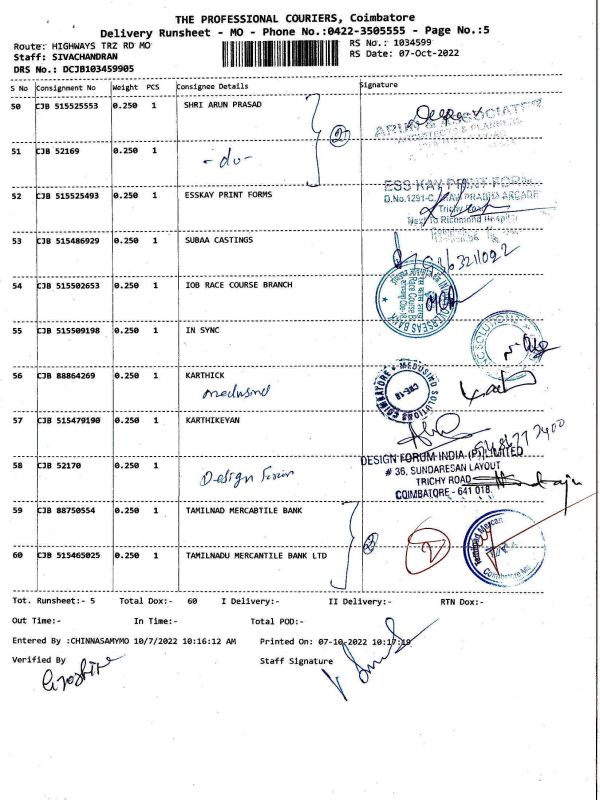 THE PROFESSIONAL COURIERS, Coimbatore
Delivery Runsheet - MO - Phone No.:0422-3505555 - Page No.:5
Route: HIGHWAYS TRZ RD MO
RS No.: 1034599
Staff: SIVACHANDRAN
RS Date: 07-Oct-2022
DRS No.: DCJB103459905
S No Consignment No Weight PCS Consignee Details Signature
50 CJB 515525553 0.250 1 SHRI ARUN PRASAD
2
51 CJB 52169 0.250 1 -do-
52 CJB 515525493 0.250 1 ESSKAY PRINT FORMS
ESS KAY PRINT FORMS
D.No.1291-C, VIJAY PRADHA ARCADE
Trichy Road
Next To Richmond Hospital
53 CJB 515486929 0.250 1 SUBAA CASTINGS
54 CJB 515502653 0.250 1 IOB RACE COURSE BRANCH
55 CJB 515509198 0.250 1 IN SYNC
56 CJB 88864269 0.250 1 KARTHICK
medusmd
MEDUSIND SOLUTIONS
COIMBATORE
CBE-18
57 CJB 515479190 0.250 1 KARTHIKEYAN
58 CJB 52170 0.250 1
Design Forum
DESIGN FORUM INDIA (P) LIMITED
# 36, SUNDARESAN LAYOUT
TRICHY ROAD
COIMBATORE - 641 018
59 CJB 88750554 0.250 1 TAMILNAD MERCABTILE BANK
2
60 CJB 515465025 0.250 1 TAMILNADU MERCANTILE BANK LTD
Tot. Runsheet:- 5 Total Dox:- 60 I Delivery:- II Delivery:- RTN Dox:-
Out Time:- In Time:- Total POD:-
Entered By :CHINNASAMYMO 10/7/2022 10:16:12 AM Printed On: 07-10-2022 10:17:19
Verified By Staff Signature